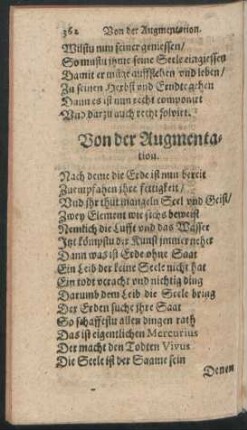 362 Von der Augmentation.
Wilstu nun seiner geniessen/
So mustu ihme seine Seele eingiessen
Damit er mäge aufstehen vnd leben/
Zu seinen Herbst vnd Erndte gehen
Dann es ist nun recht componirt
Vnd darzu auch recht solvirt.
Von der Augmenta-
tion.
Nach deme die Erde ist nun bereit
Zu empfahen ihre fettigkeit/
Vnd ihr thut mangeln Seel vnd Geist/
Zwey Element wie sichs beweist
Nemlich die Lufft vnd das Wasser
Jtzt kömpstu der Kunst immer neher
Dann was ist Erde ohne Saat
Ein Leib der keine Seele nicht hat
Ein todt veracht vnd nichtig ding
Darumb dem Leib die Seele bring
Der Erden suche ihre Saat
So schaffestu allen dingen rath
Das ist eigentlichen Mercurius
Der macht den Todten Vivus
Die Seele ist der Saame sein
Denen